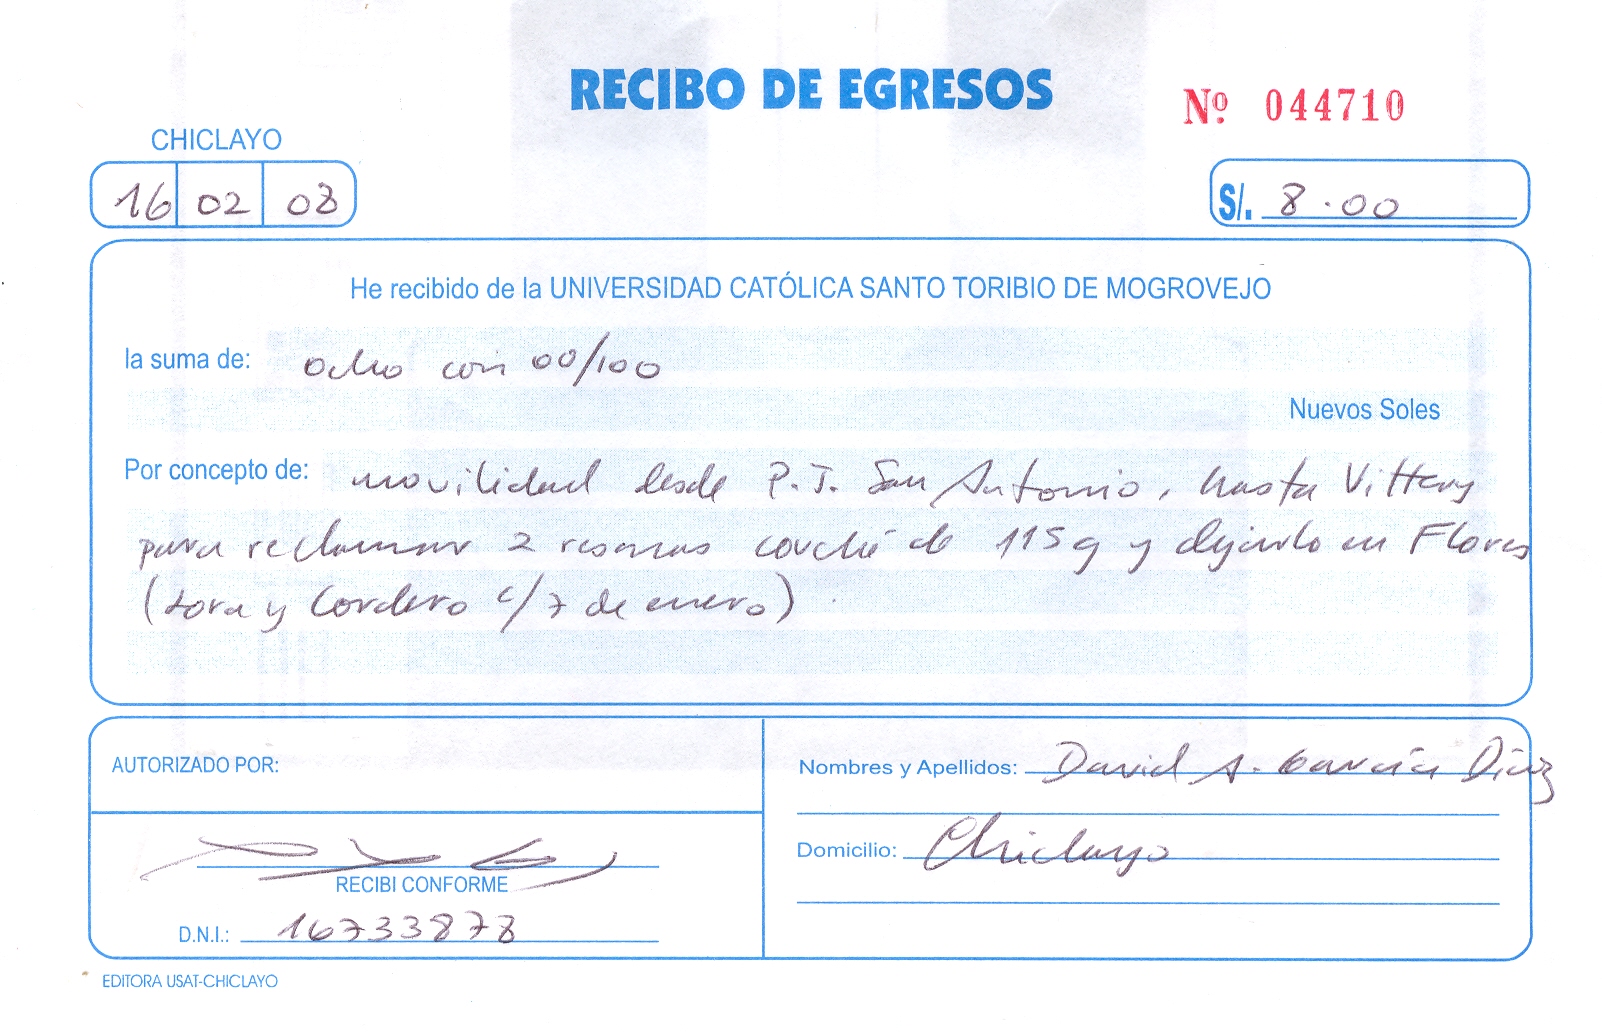 RECIBO DE EGRESOS
Nº 044710
CHICLAYO
16 02 08
S/. 8.00
He recibido de la UNIVERSIDAD CATÓLICA SANTO TORIBIO DE MOGROVEJO
la suma de: Ocho con 00/100
Nuevos Soles
Por concepto de: movilidad desde P.J. San Antonio, hasta Vittery
para reclamar 2 resmas couché de 115 g y dejarlo en Flores
(Lora y Cordero c/7 de enero)
AUTORIZADO POR:
Nombres y Apellidos: David A. García Díaz
Domicilio: Chiclayo
RECIBI CONFORME
D.N.I.: 16733878
EDITORA USAT-CHICLAYO